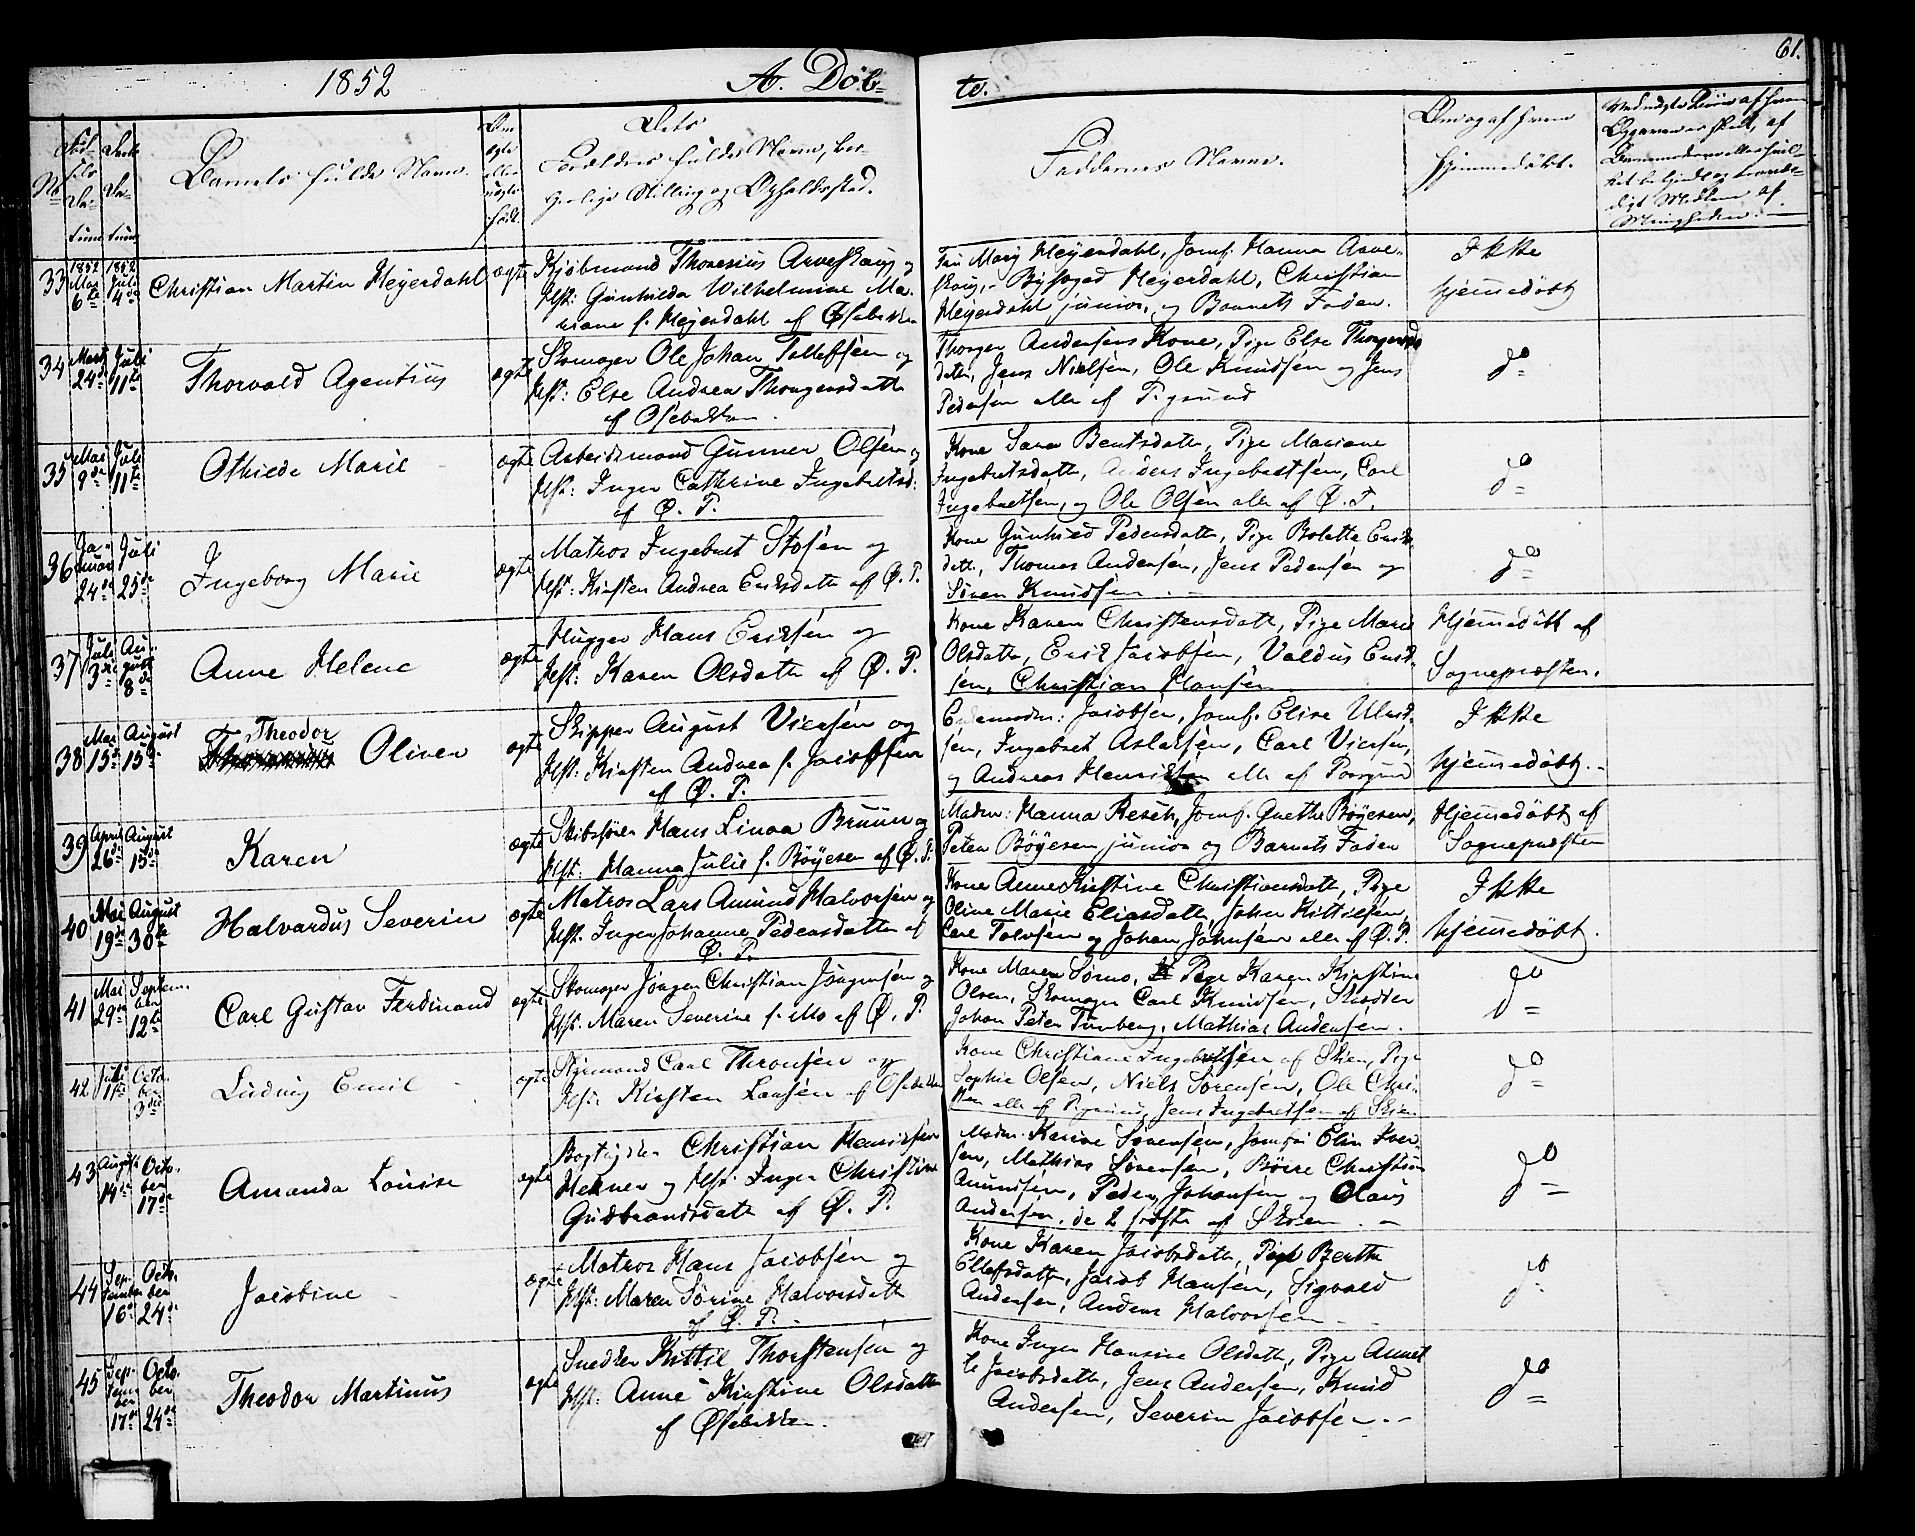 1852 A. Døb- te. 61.
No Fød- sels Da- tum
Daab Da- tum
Barnets fulde Navn.
Om ægte eller uægte født.
Dets Forældres fulde Navn, bor-
gerlige Stilling og Opholdssted.
Faddernes Navne.
Om og af hvem
hjemmedøbt.
33 1852 Mai 6te 1852 Juli 4de Christian Martin Heyerdahl ægte
Kjøbmand Thoresius Arveskoug og
Hst: Gunhilda Wilhelmine Ma-
riane f. Heyerdahl af Øsebakken
Fru Mary Heyerdahl, Jomf. Hanna Arve-
skoug, Byfoged Heyerdahl, Christian
Heyerdahl junior, og Barnets Fader.
Ikke
hjemmedøbt
34 Marts 24de Juli 11te Thorvald Agentius ægte
Skomager Ole Johan Tollefsen og
Hst: Else Andrea Thorgersdatter
af Øsebakken.
Thorger Andersens Kone, Pige Else Thorgers
datter, Jens Nielsen, Ole Knudsen og Jens
Pedersen alle af P.grund
do
35 Mai 9de Juli 11te Othilde Marie ægte
Arbeidsmand Gunner Olsen og
Hst: Inger Cathrine Ingebretsd:
af Ø. P.
Kone Sara Bentsdatter, Pige Mariane
Ingebretsdatter, Anders Ingebretsen, Carl
Ingebretsen, og Ole Olsen alle af Ø. P.
do
36 Ja- nuar 24de Juli 25de Ingeborg Marie ægte
Matros Ingebret Stosen og
Hst: Kirsten Andrea Eriksdatter af Ø. P.
Kone Gunhild Pedersdatter, Pige Bolette Eriks
datter, Thomas Andersen, Jens Pedersen og
Søren Knudsen
do
37 Juli 3die Au- gust 8de Anne Helene ægte
Hugger Hans Eriksen og
Hst: Karen Olsdatter af Ø. P.
Kone Karen Christensdatter, Pige Marie
Olsdatter, Erik Jacobsen, Valdus Erik-
sen, Christian Hansen
Hjemmedøbt af
Sognepræsten.
38 Mai 15de August 15de Theodor Oliver ægte
Skipper August Viersen og
Hst: Kirsten Andrea f. Jacobsen
af Ø. P.
Jacobsen, Jomf. Elise Ulrik-
sen, Ingebret Aslaksen, Carl Viersen,
og Andreas Henriksen alle af Porsgrund
Ikke
hjemmedøbt.
39 April 26de August 15de Karen ægte
Skibsfører Hans Linaa Bruun og
Hst: Hanna Julie f. Bøyesen af Ø. P.
Madm: Hanna Resch, Jomf. Grethe Bøyesen,
Peter Bøyesen junior og Barnets Fader
Hjemmedøbt af
Sognepræsten
40 Mai 19de August 30te Halvardus Severin ægte
Matros Lars Amund Halvorsen og
Hst. Inger Johanne Pedersdatter af
Ø. P.
Kone Anne Kirstine Christiansdatter, Pige
Oline Marie Eliasdatter, John Kittilsen,
Carl Tolvsen og Johan Johnsen alle af Ø. P.
Ikke
hjemmedøbt.
41 Mai 29de Septem- ber 12te Carl Gustav Ferdinand ægte
Skomager Jörgen Christian Jörgensen og
Hst. Maren Severine f. Mo af Ø. P.
Kone Maren Sørine, Pige Karen Kirstine
Olsen, Skomager Carl Knudsen, Skredder
Johan Peter Tunberg, Mathias Andersen.
do
42 Juli Octo- ber 3die Ludvig Emil ægte
Styrmand Carl Thronsen og
Hst: Kirsten Larsen af Øsebakken
Kone Christiane Ingebretsen af Skien, Pige
Sophie Olsen, Niels Sørensen, Ole Chri-
sten alle af P.grund, Jens Ingebretsen af Skien
do
43 August 14de Octo- ber 17de Amanda Louise ægte
Bogtrykker Christian Henriksen
Helgner og Hst. Inger Christine
Gudbrandsdatter af Ø. P.
Madm. Karine Sørensen, Jomfru Elin Iver-
sen, Mathias Sørensen, Børre Christian
Amundsen, Peder Johansen og Olaus
Andersen, de 2 første af Skien.
do
44 Sep- tember 16de Octo- ber 24de Jacobine ægte
Matros Hans Jacobsen og
Hst: Maren Sörine Halvorsdatter
af Ø. P.
Kone Karen Jacobsdatter, Pige Berthe
Ellefsdatter, Jacob Hansen, Sigvald
Andersen, Anders Halvorsen
do
45 Sep- tem- ber 17de Octo- ber 24de Theodor Martinus ægte
Snedker Kittil Thorstensen og
Hst: Anne Kirstine Olsdatter
af Øsebakken.
Kone Inger Hansine Olsdatter, Pige Annet-
te Jacobsdatter, Jens Andersen, Knud
Andersen, Severin Jacobsen.
do